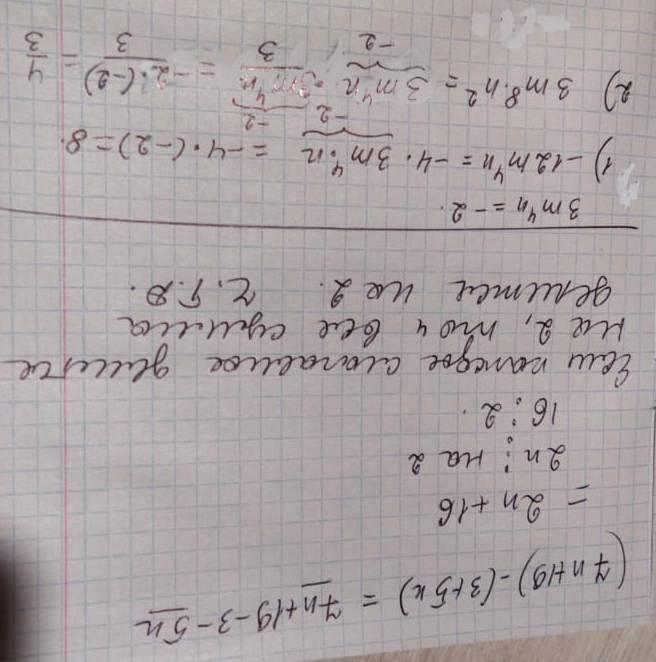 (7n+19)-(3+5n) = 7n+19-3-5n
= 2n+16
2n ⋮ на 2
16 ⋮ 2.
Если каждое слагаемое делится
на 2, то и вся сумма
делится на 2. Ч.Т.Д.
3m⁴n = -2.
1) -12m⁴n = -4 · 3m⁴n = -4 · (-2) = 8.
-2
2) 3m⁸·n² = 3m⁴n · 3m⁴n / 3 = -2·(-2) / 3 = 4/3
-2 -2